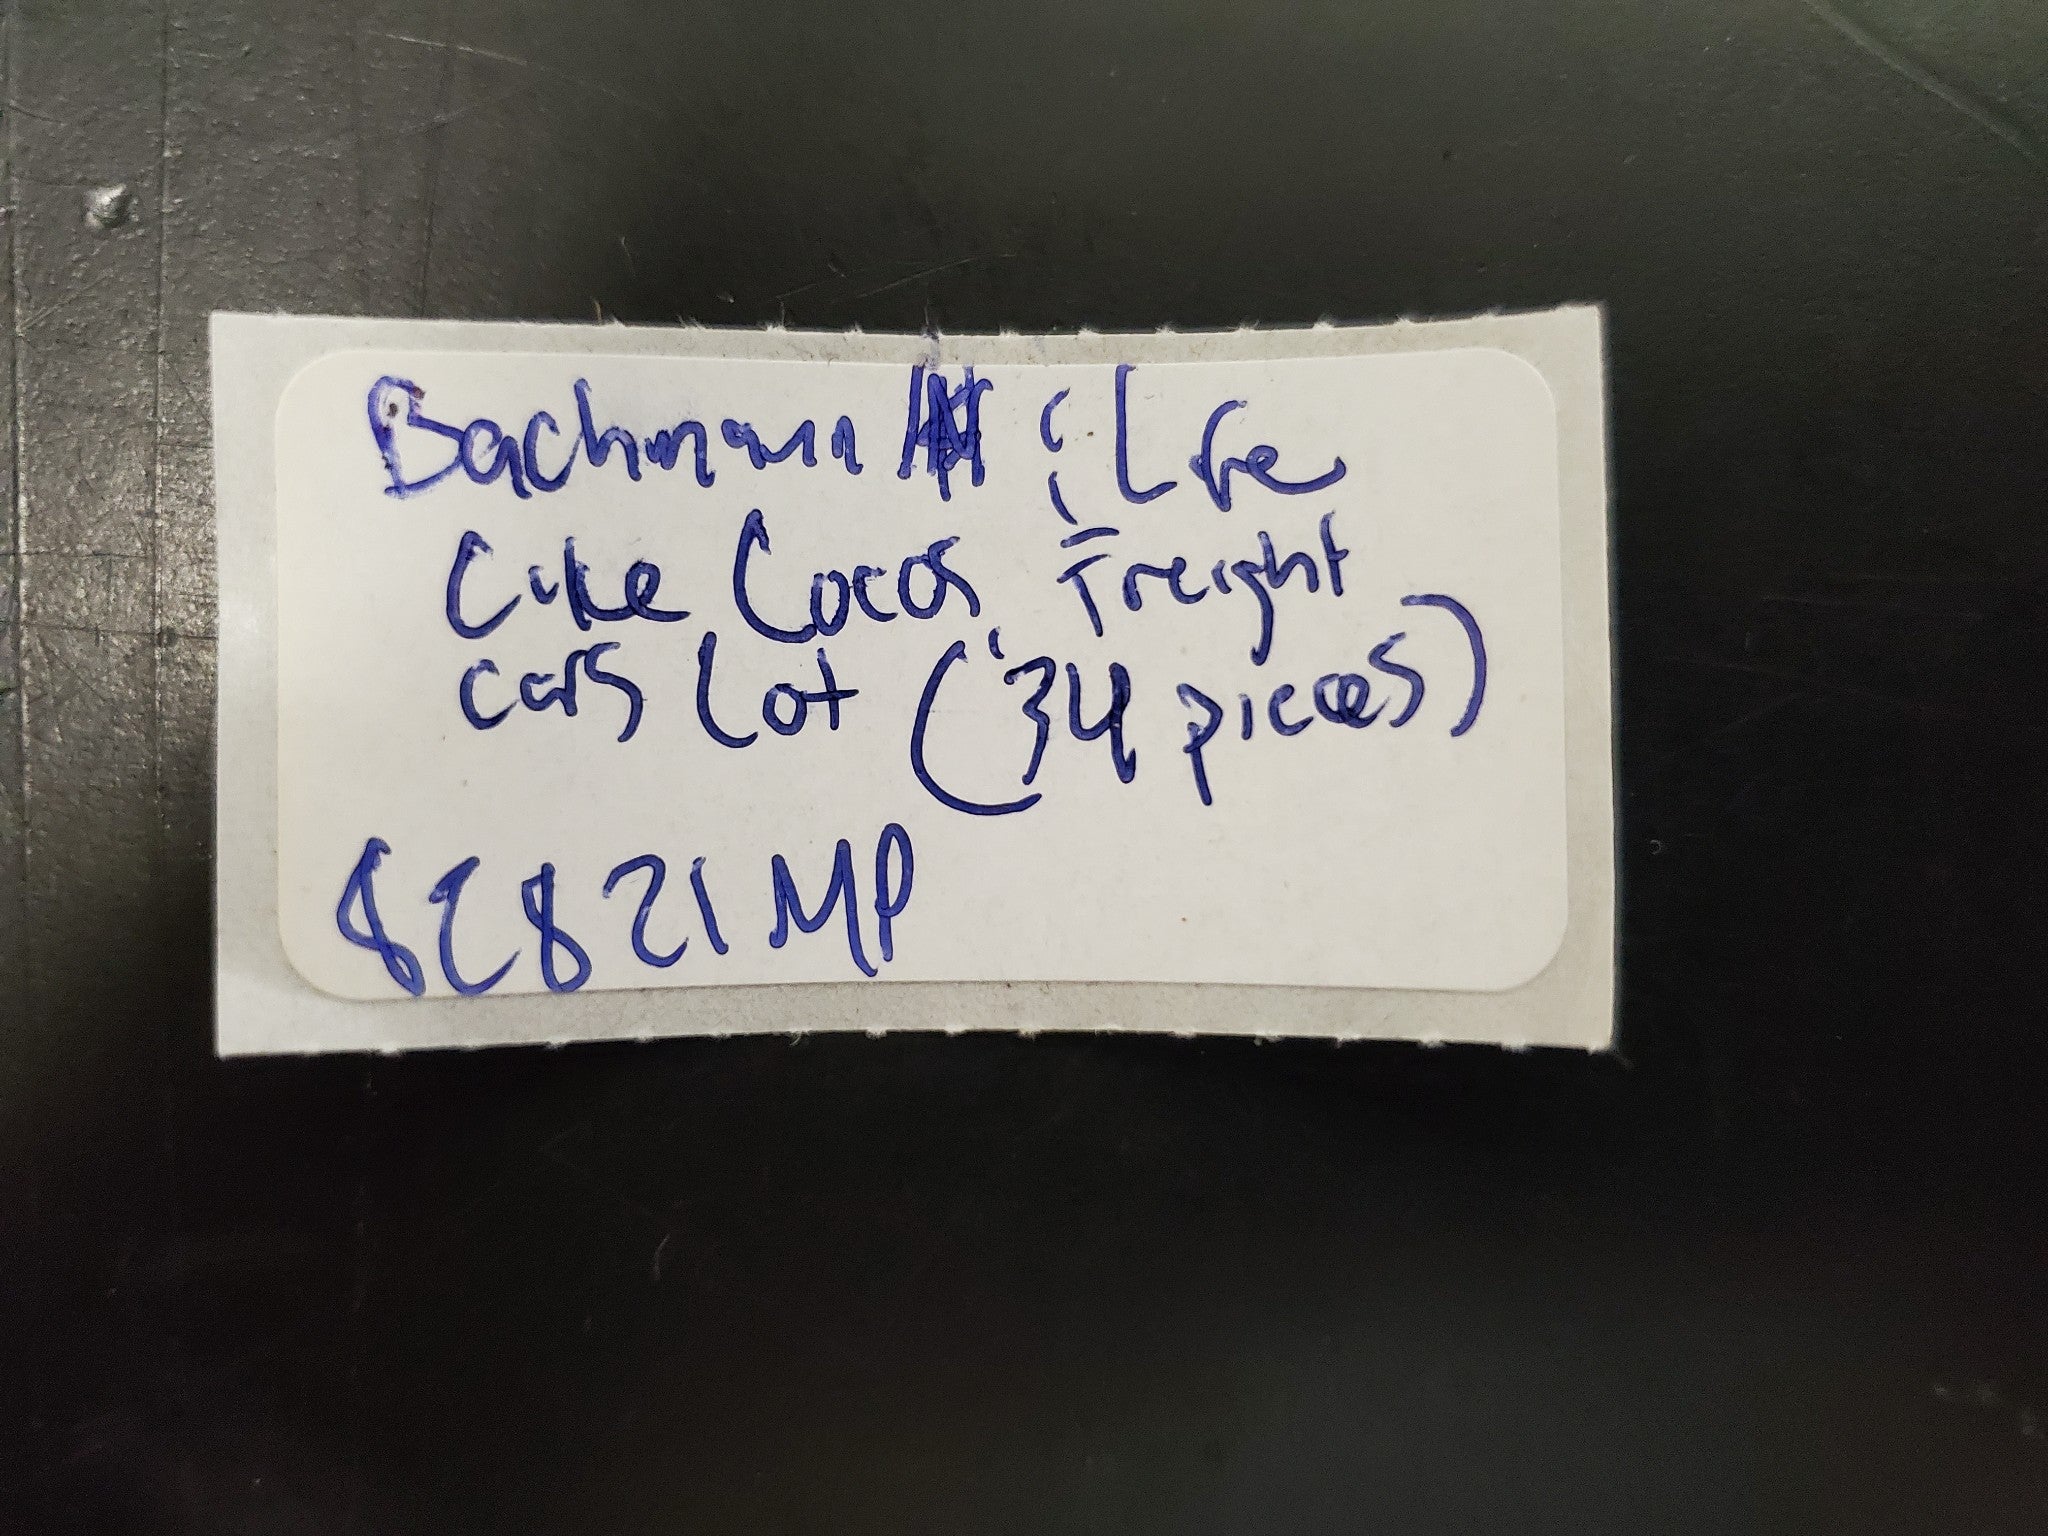 Bachmann N & Life
Like Locos Freight
cars Lot (34 pieces)
82821MP